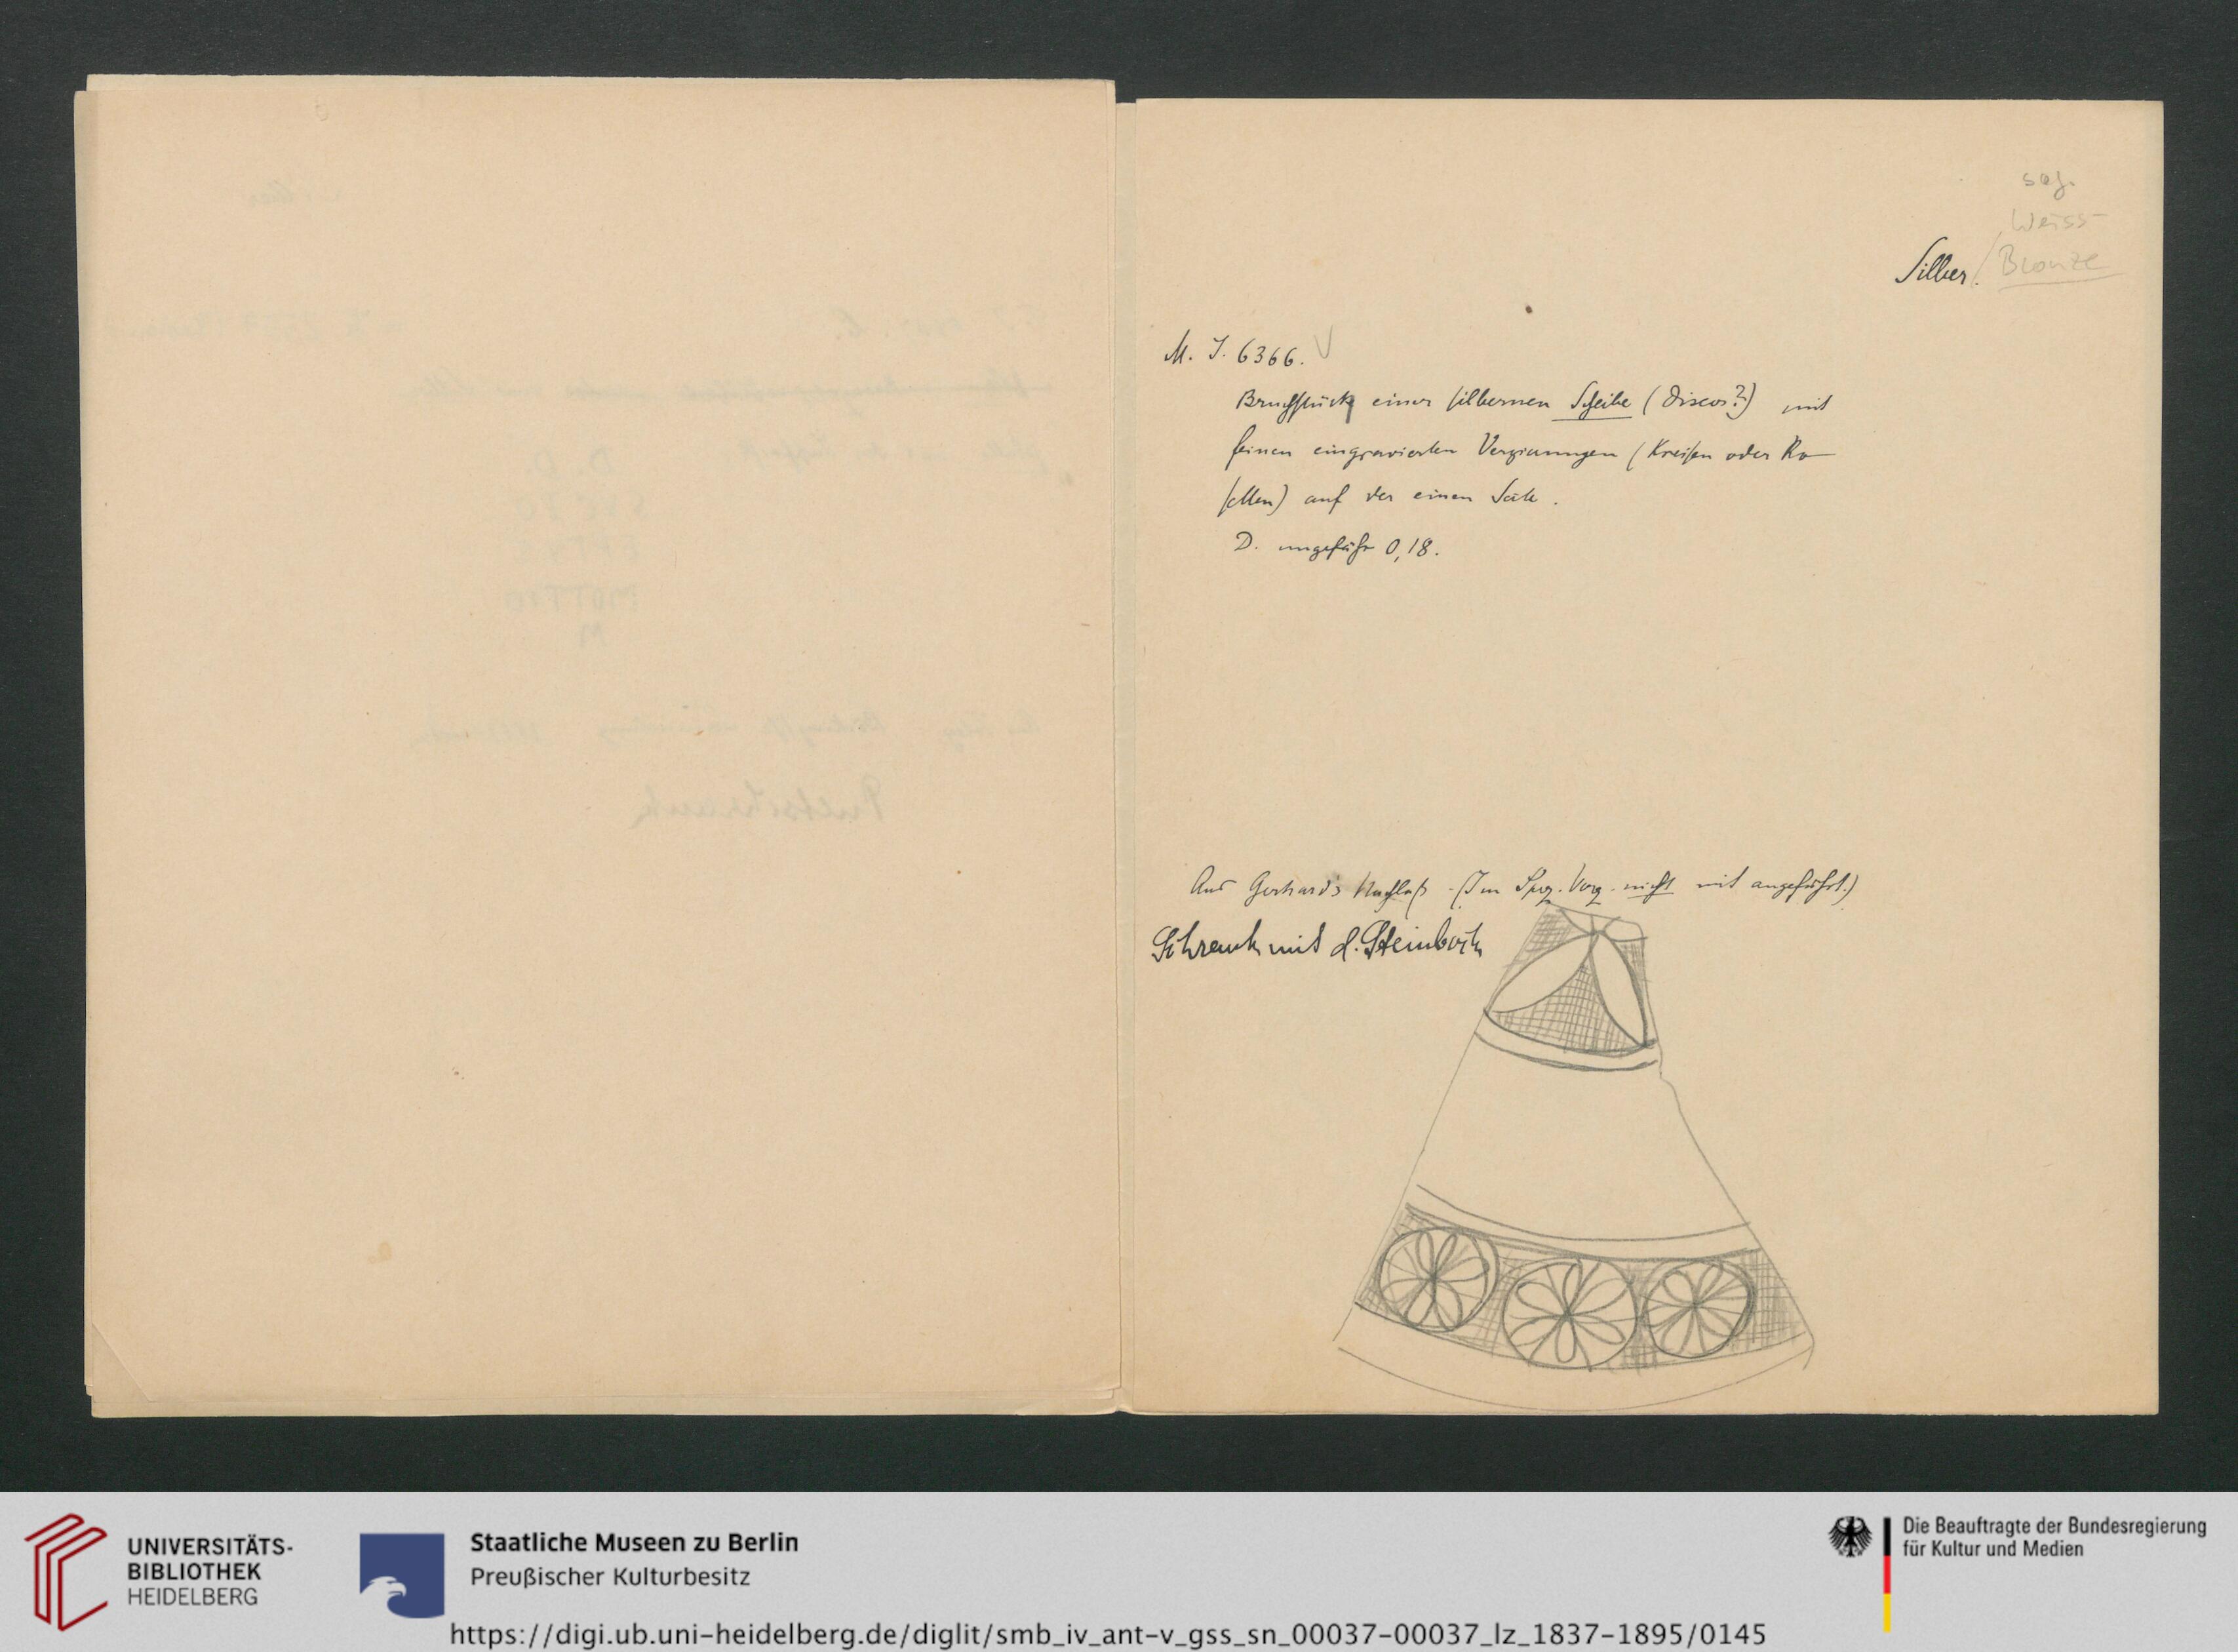 sog.
Weiss-
Silber. / Bronze
M. I. 6366. V
Bruchstück einer silbernen Scheibe (Discos?) mit
feinen eingravierten Verzierungen (Kreisen oder Ro-
setten) auf der einen Seite.
D. ungefähr 0,18.
Aus Gerhard's Nachlaß. (Im Spez. Verz. nicht mit angeführt.)
Schrank mit d. Steinbock
UNIVERSITÄTS-
BIBLIOTHEK
HEIDELBERG
Staatliche Museen zu Berlin
Preußischer Kulturbesitz
Die Beauftragte der Bundesregierung
für Kultur und Medien
https://digi.ub.uni-heidelberg.de/diglit/smb_iv_ant-v_gss_sn_00037-00037_lz_1837-1895/0145